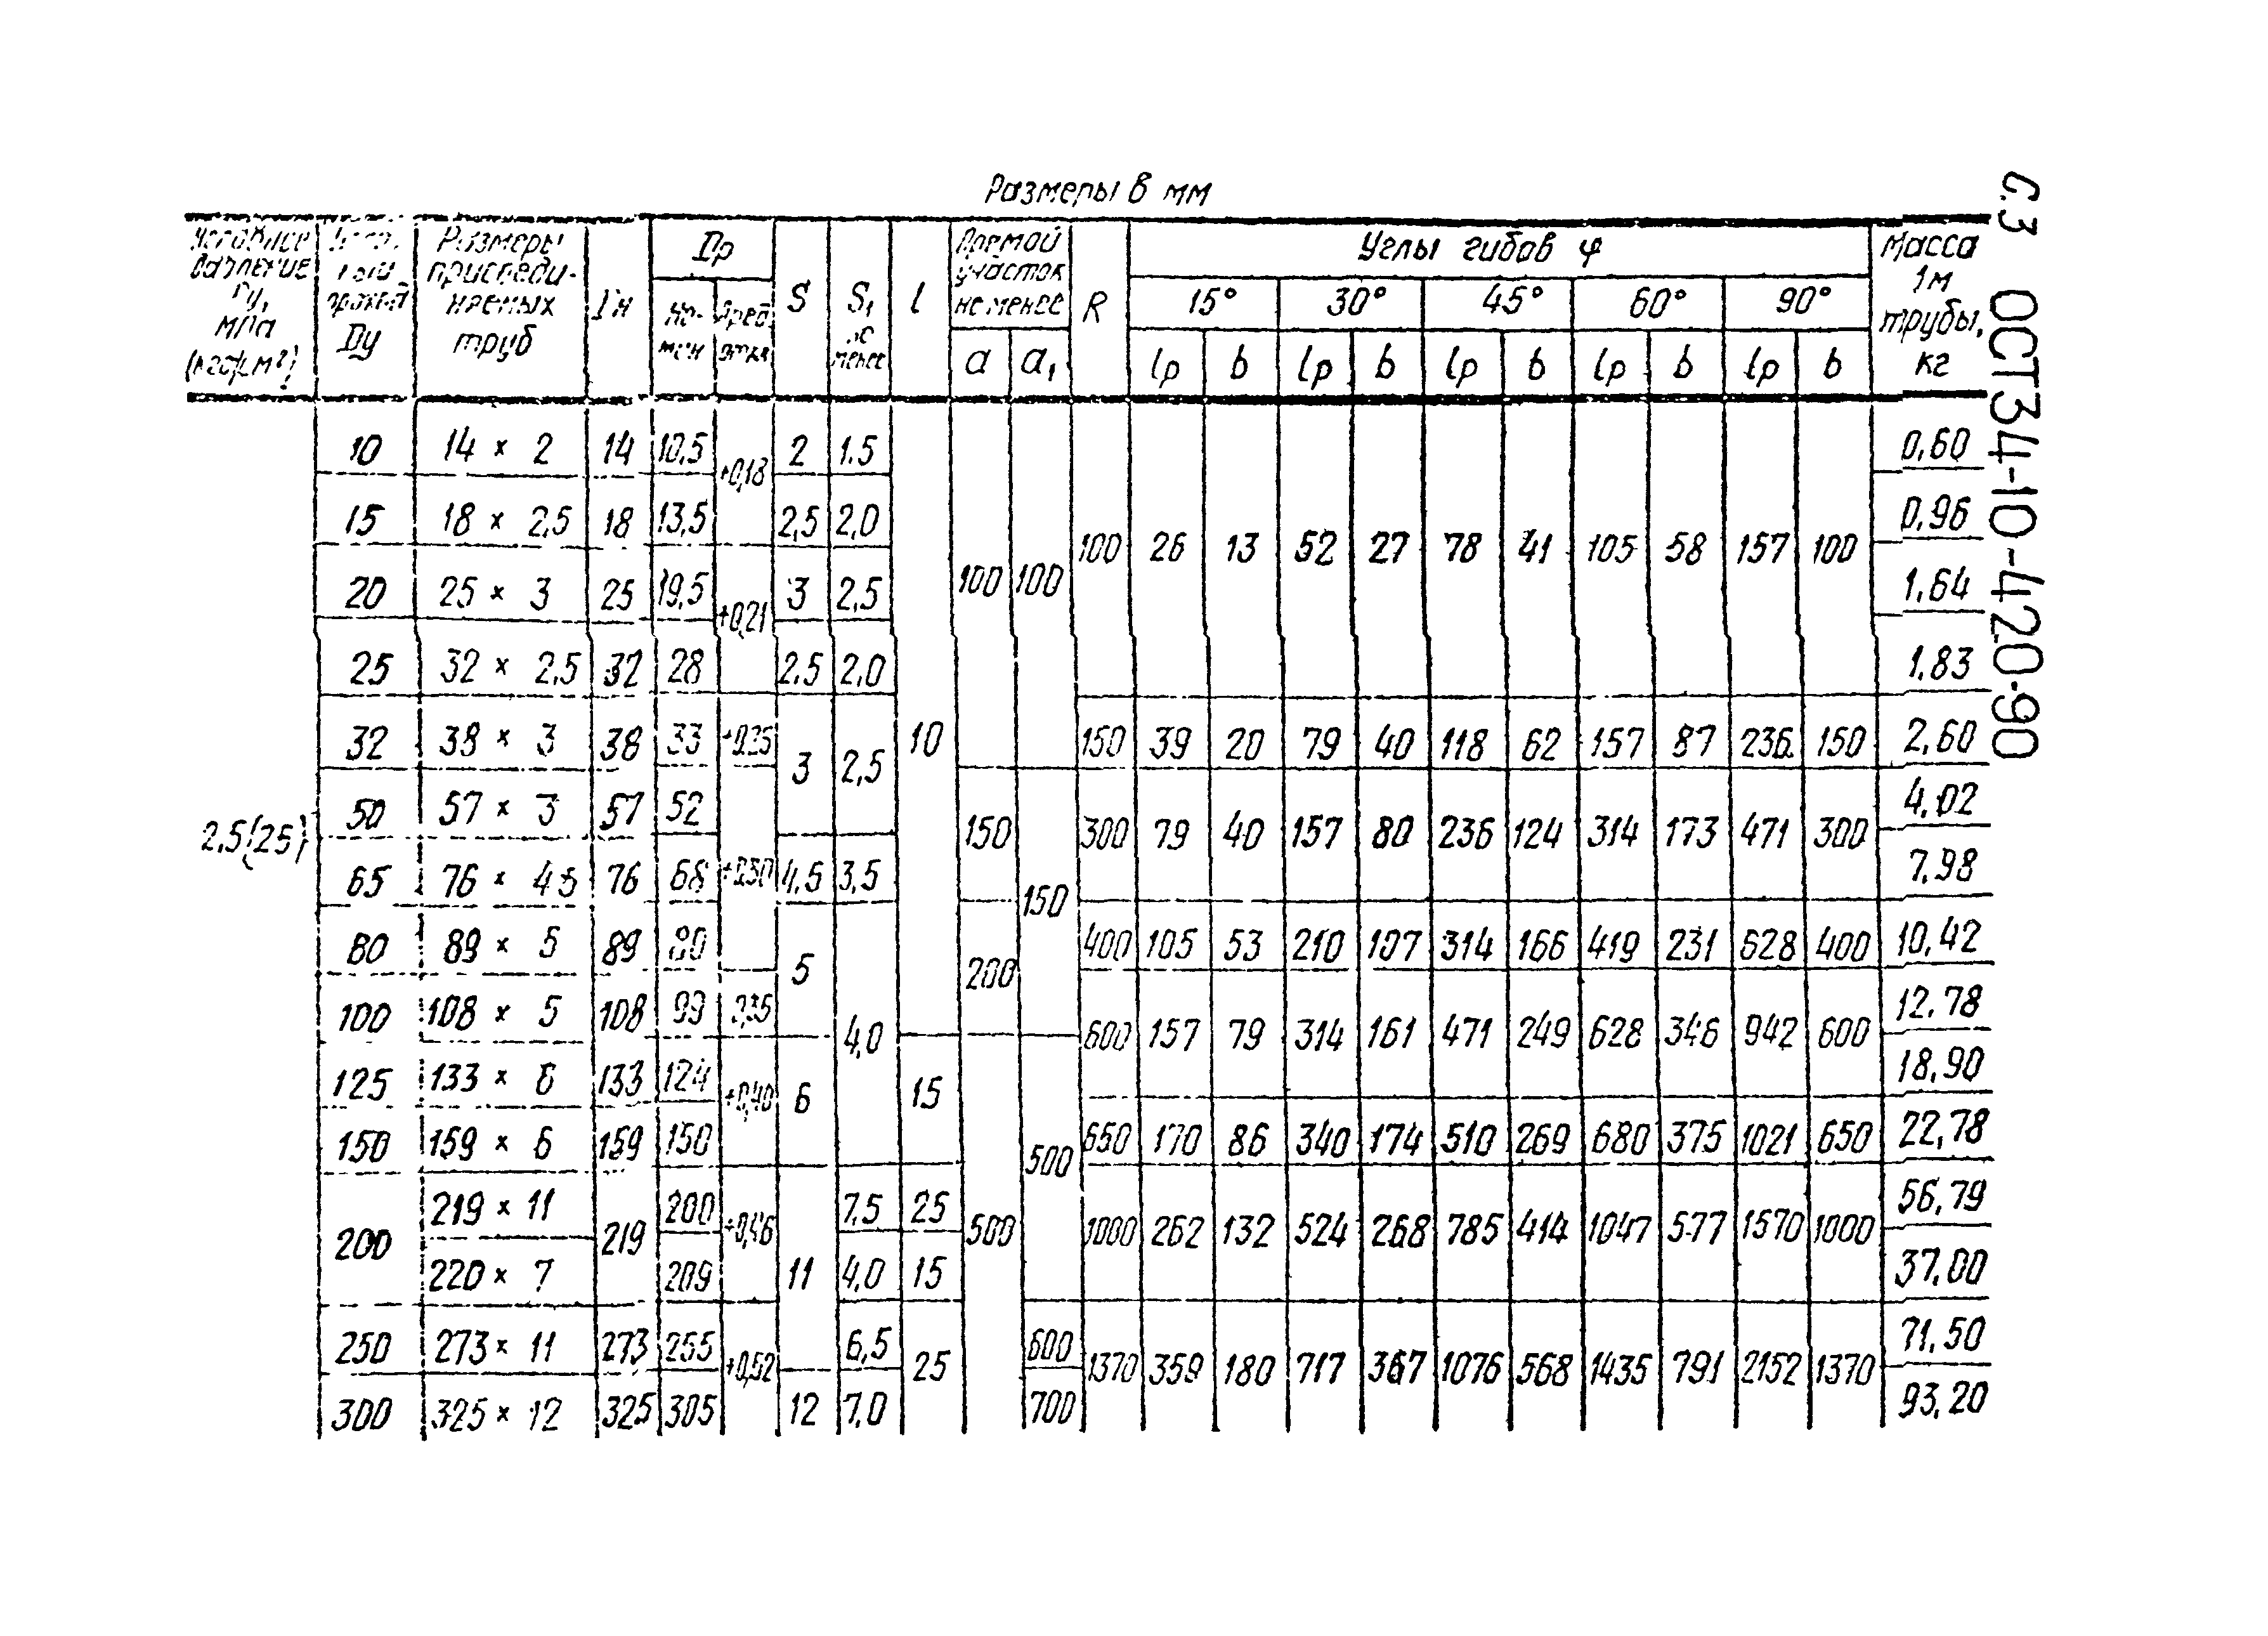 Размеры в мм
Условное давление Ру, МПа (кгс/см²)
проход Ду
Размеры присоединяемых труб
Дн
Др
Номин
Пред. откл.
S
S₁ не менее
l
Прямой участок не менее
a
a₁
R
Углы гибов φ
15° 30° 45° 60° 90°
lр b lр b lр b lр b lр b
Масса 1м трубы, кг
2,5(25)
10 14 × 2 14 10,5 +0,18 2 1.5 0,60
15 18 × 2,5 18 13,5 2,5 2,0 100 26 13 52 27 78 41 105 58 157 100 0,96
20 25 × 3 25 19,5 +0,21 3 2,5 100 100 1,64
25 32 × 2,5 32 28 2,5 2,0 1,83
32 38 × 3 38 33 3 2,5 10 150 39 20 79 40 118 62 157 87 236 150 2,60
50 57 × 3 57 52 150 300 79 40 157 80 236 124 314 173 471 300 4,02
65 76 × 4,5 76 68 +0,30 4,5 3,5 150 7,98
80 89 × 5 89 80 5 200 400 105 53 210 107 314 166 419 231 628 400 10,42
100 108 × 5 108 99 4,0 600 157 79 314 161 471 249 628 346 942 600 12,78
125 133 × 6 133 124 +0,40 6 15 18,90
150 159 × 6 159 150 500 650 170 86 340 174 510 269 680 375 1021 650 22,78
200 219 × 11 219 200 +0,46 7,5 25 500 1000 262 132 524 268 785 414 1047 577 1570 1000 56,79
220 × 7 209 11 4,0 15 37,00
250 273 × 11 273 255 +0,52 6,5 25 600 1370 359 180 717 367 1076 568 1435 791 2152 1370 71,50
300 325 × 12 325 305 12 7,0 700 93,20
С.3 ОСТ34-10-420-90